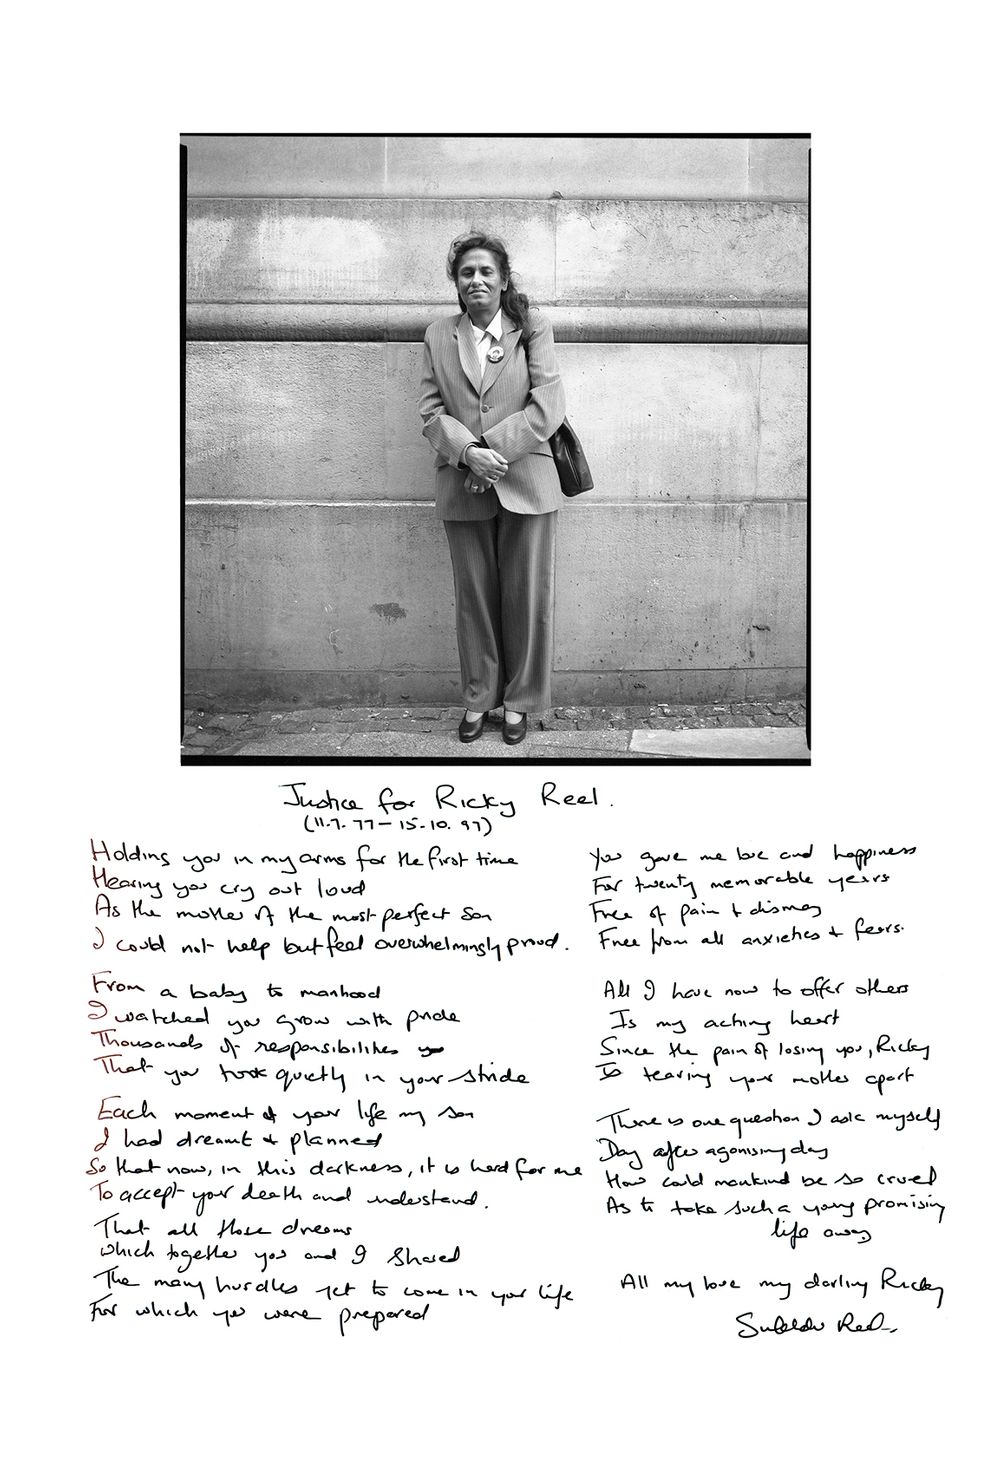 Justice for Ricky Reel.
(11.7.77 – 15.10.97)
Holding you in my arms for the first time
Hearing you cry out loud
As the mother of the most perfect son
I could not help but feel overwhelmingly proud.
From a baby to manhood
I watched you grow with pride
Thousands of responsibilities
That you took quietly in your stride
Each moment of your life my son
I had dreamt & planned
So that now, in this darkness, it is hard for me
To accept your death and understand.
That all those dreams
which together you and I shared
The many hurdles yet to come in your life
For which you were prepared
You gave me love and happiness
For twenty memorable years
Free of pain & dismay
Free from all anxieties & fears.
All I have now to offer others
Is my aching heart
Since the pain of losing you, Ricky
Is tearing your mother apart
There is one question I ask myself
Day after agonising day
How could mankind be so cruel
As to take such a young promising
life away
All my love my darling Ricky
Sukhdev Reel.